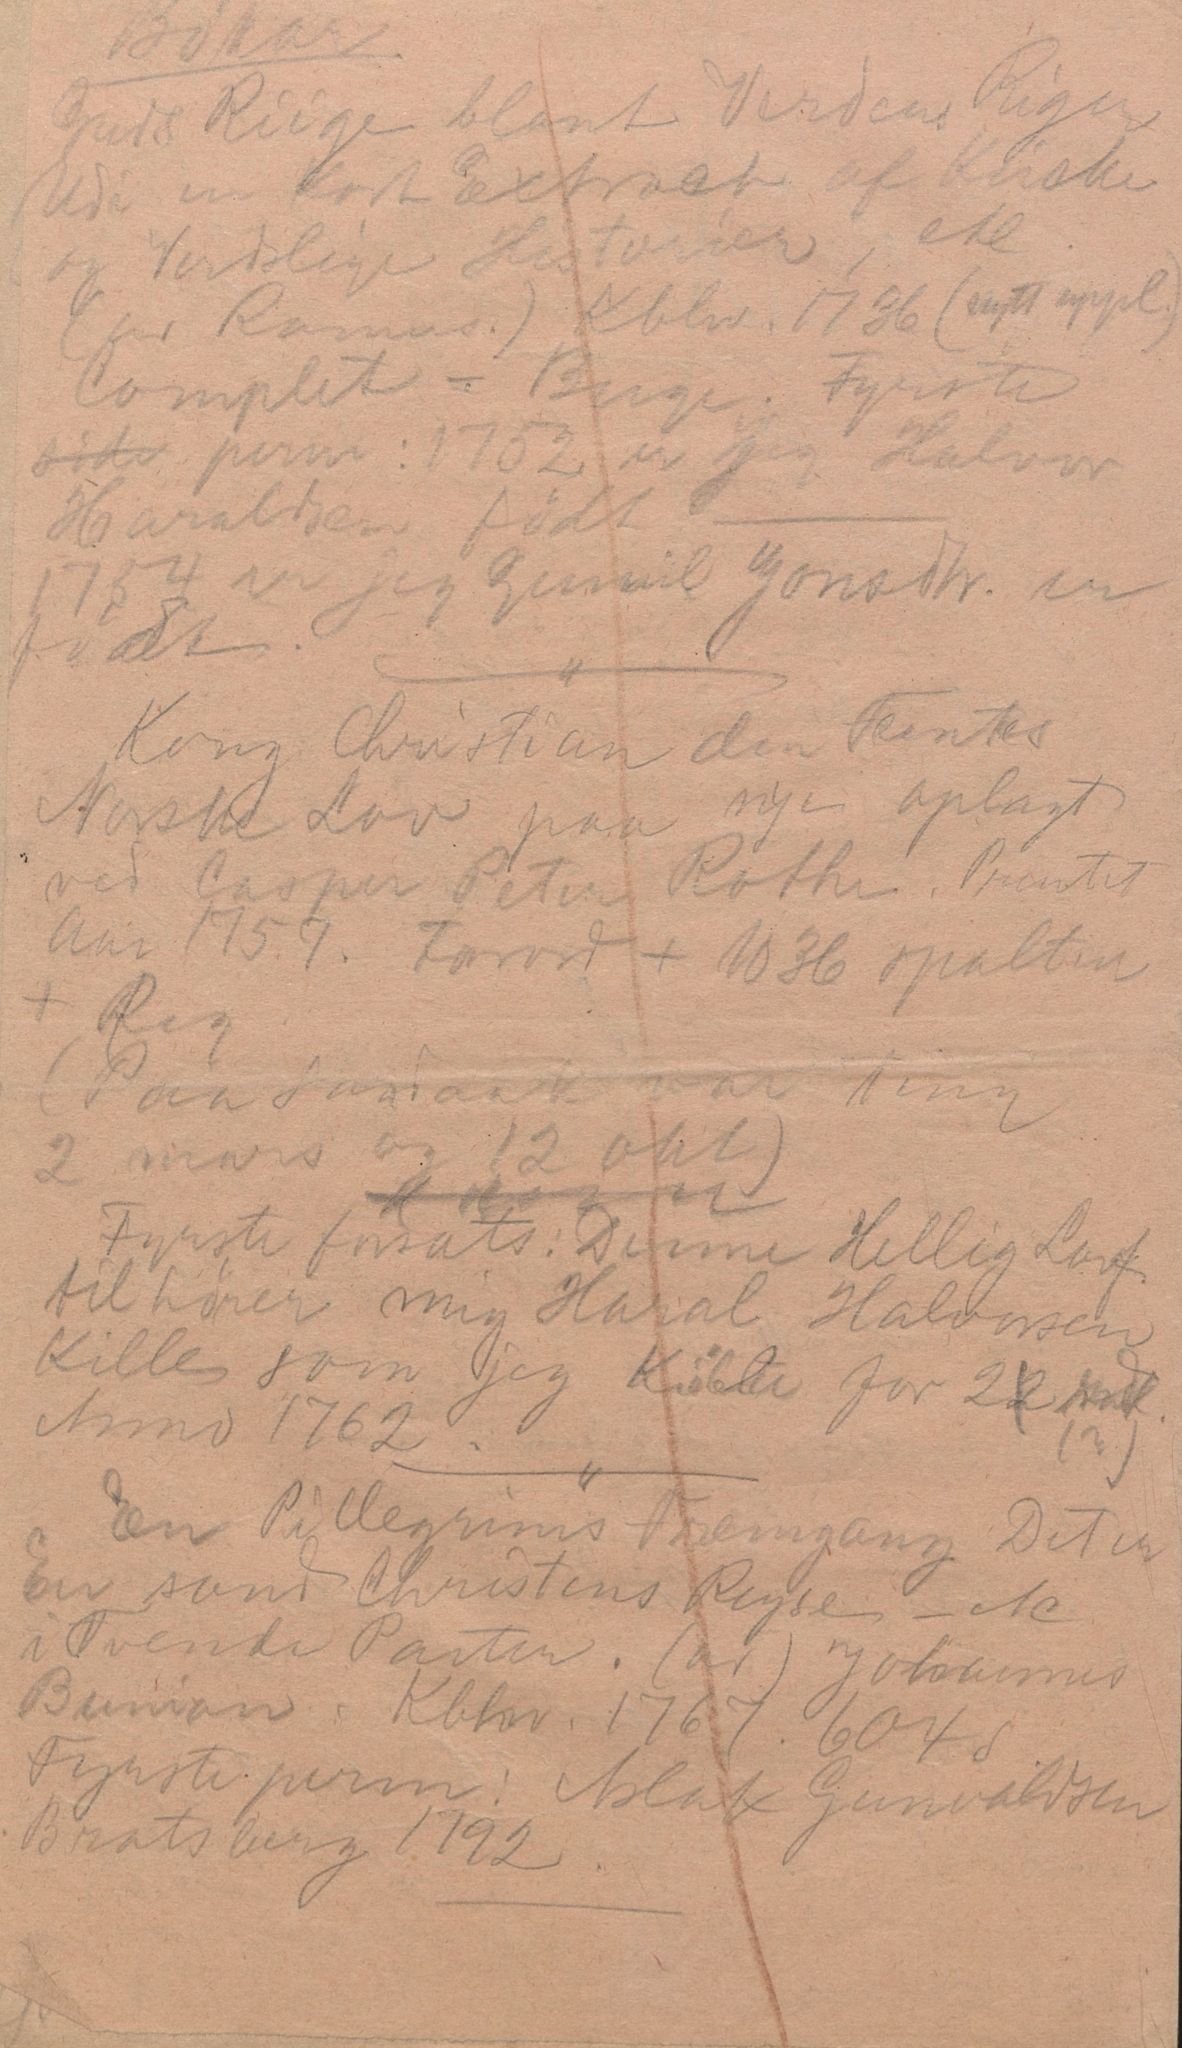 Bøkar
Guds Riige blant Verdens Riger
Udi en kort Extract af Kirke
og Verdslige Historier, etc.
(av Ramus.) Kbhv. 1736 (nytt uppl.)
Complet - Berge. Fyrste
side perm: 1752 er jeg Halvor
Haraldsen født
1754 er jeg Gunil Jonsdtr. er
født.
Kong Christian den Femtes
Norske Lov paa nye oplagt
ved Casper Peter Rothe. Prentet
Aar 1757. Forord + 1036 spalter
+ Reg.
(Paa var ting
2 mars og 12 okt)
Fyrste forsats: Denne Hellig Lov
tilhører mig Haral Halvorsen
Kille som jeg Kiøbte for
Anno 1762.
En Pillegrims Fremgang Det er
En sand Christens Reyse - etc
i Tvende Parter. (av) Johannes
Bunian. Kbhv. 1767. 604 s
Fyrste perm: Aslak Gunvaldsen
Bratsberg 1792.